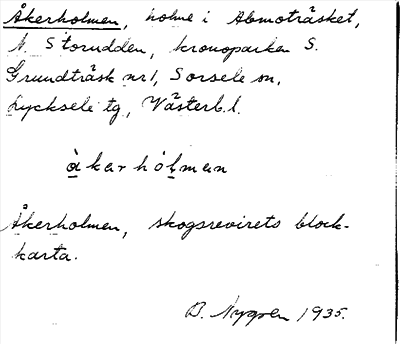 Åkerholmen, holme i Abmoträsket,
N. Storudden, kronoparken S.
Grundträsk nr 1, Sorsele sn,
Lycksele tg, Västerb. l.
å̀karhólmen
Åkerholmen, skogsrevirets block-
karta.
B. Nygren 1935.